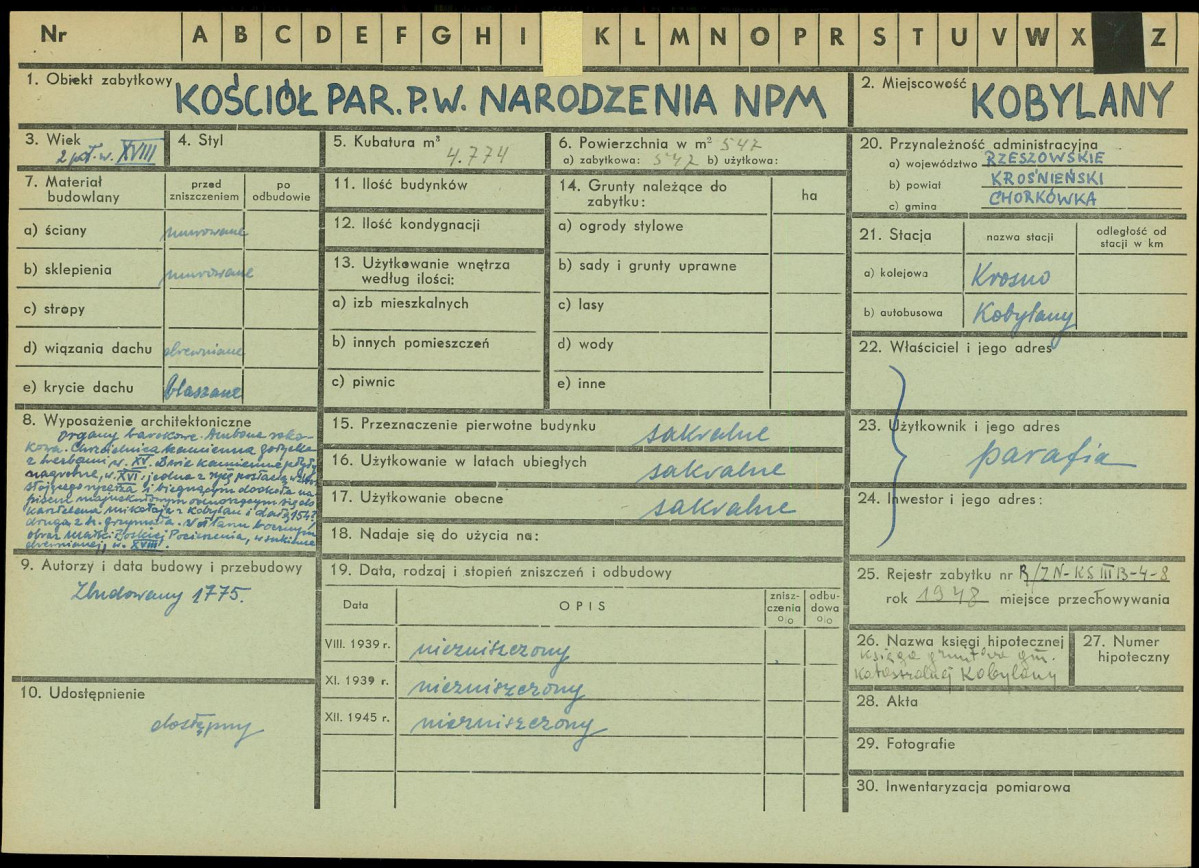 Nr A B C D E F G H I K L M N O P R S T U V W X Z
1. Obiekt zabytkowy KOŚCIÓŁ PAR. P.W. NARODZENIA NPM
2. Miejscowość KOBYLANY
3. Wiek
2 poł. w. XVIII
4. Styl
5. Kubatura m³
4.774
6. Powierzchnia w m² 542
a) zabytkowa: 542 b) użytkowa:
7. Materiał budowlany
przed zniszczeniem
po odbudowie
a) ściany murowane
b) sklepienia murowane
c) stropy
d) wiązania dachu drewniane
e) krycie dachu blaszane
8. Wyposażenie architektoniczne
organy barokowe. Ambona roko-
kowa. Chrzcielnica kamienna gotycka
z herbami, w. XV. Dwie kamienne płyty
nagrobne, w. XVI; jedna z nich postacią
stojącego rycerza i biegnącym dookoła na
pisem majuskułowym odnoszącym się do
kasztelana Mikołaja z Kobylan i datą 154
druga z h. Grzymała. W ołtarzu bocznym
obraz Matki Boskiej Pocieszenia, w sukience
drewnianej, w. XVIII.
9. Autorzy i data budowy i przebudowy
Zbudowany 1775.
10. Udostępnienie
dostępny
11. Ilość budynków
12. Ilość kondygnacji
13. Użytkowanie wnętrza
według ilości:
a) izb mieszkalnych
b) innych pomieszczeń
c) piwnic
14. Grunty należące do
zabytku:
ha
a) ogrody stylowe
b) sady i grunty uprawne
c) lasy
d) wody
e) inne
15. Przeznaczenie pierwotne budynku sakralne
16. Użytkowanie w latach ubiegłych sakralne
17. Użytkowanie obecne sakralne
18. Nadaje się do użycia na:
19. Data, rodzaj i stopień zniszczeń i odbudowy
Data
OPIS
znisz-
czenia
%
odbu-
dowa
%
VIII. 1939 r. niezniszczony
XI. 1939 r. niezniszczony
XII. 1945 r. niezniszczony
20. Przynależność administracyjna
a) województwo RZESZOWSKIE
b) powiat KROŚNIEŃSKI
c) gmina CHORKÓWKA
21. Stacja
nazwa stacji
odległość od
stacji w km
a) kolejowa Krosno
b) autobusowa Kobylany
22. Właściciel i jego adres
23. Użytkownik i jego adres
parafia
24. Inwestor i jego adres:
25. Rejestr zabytku nr R/ZN-KS III B-4-8
rok 1948 miejsce przechowywania
26. Nazwa księgi hipotecznej
księga gruntowa gm.
katastralnej Kobylany
27. Numer
hipoteczny
28. Akta
29. Fotografie
30. Inwentaryzacja pomiarowa